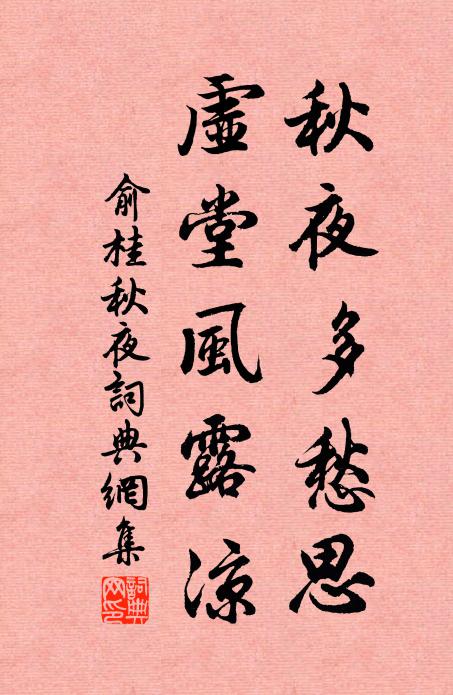 秋夜多愁思
虛堂風露涼
俞桂秋夜詞典網集
詞典网印